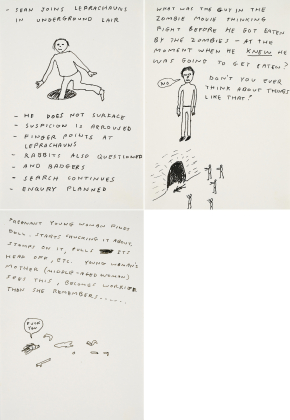 - SEAN JOINS LEPRACHAUNS
IN UNDERGROUND LAIR
- HE DOES NOT SURFACE
- SUSPICION IS AROUSED
- FINGER POINTS AT
LEPRACHAUNS
- RABBITS ALSO QUESTIONED
- AND BADGERS
- SEARCH CONTINUES
- ENQURY PLANNED
WHAT WAS THE GUY IN THE
ZOMBIE MOVIE THINKING
RIGHT BEFORE HE GOT EATEN
BY THE ZOMBIES - AT THE
MOMENT WHEN HE KNEW HE
WAS GOING TO GET EATEN?
NO
DON'T YOU EVER
THINK ABOUT THINGS
LIKE THAT?
PREGNANT YOUNG WOMAN FINDS
DOLL. STARTS CHUCKING IT ABOUT,
STAMPS ON IT, PULLS ITS
HEAD OFF, ETC. YOUNG WOMAN'S
MOTHER (MIDDLE-AGED WOMAN)
SEES THIS, BECOMES WORRIED
THEN SHE REMEMBERS......
FUCK
YOU